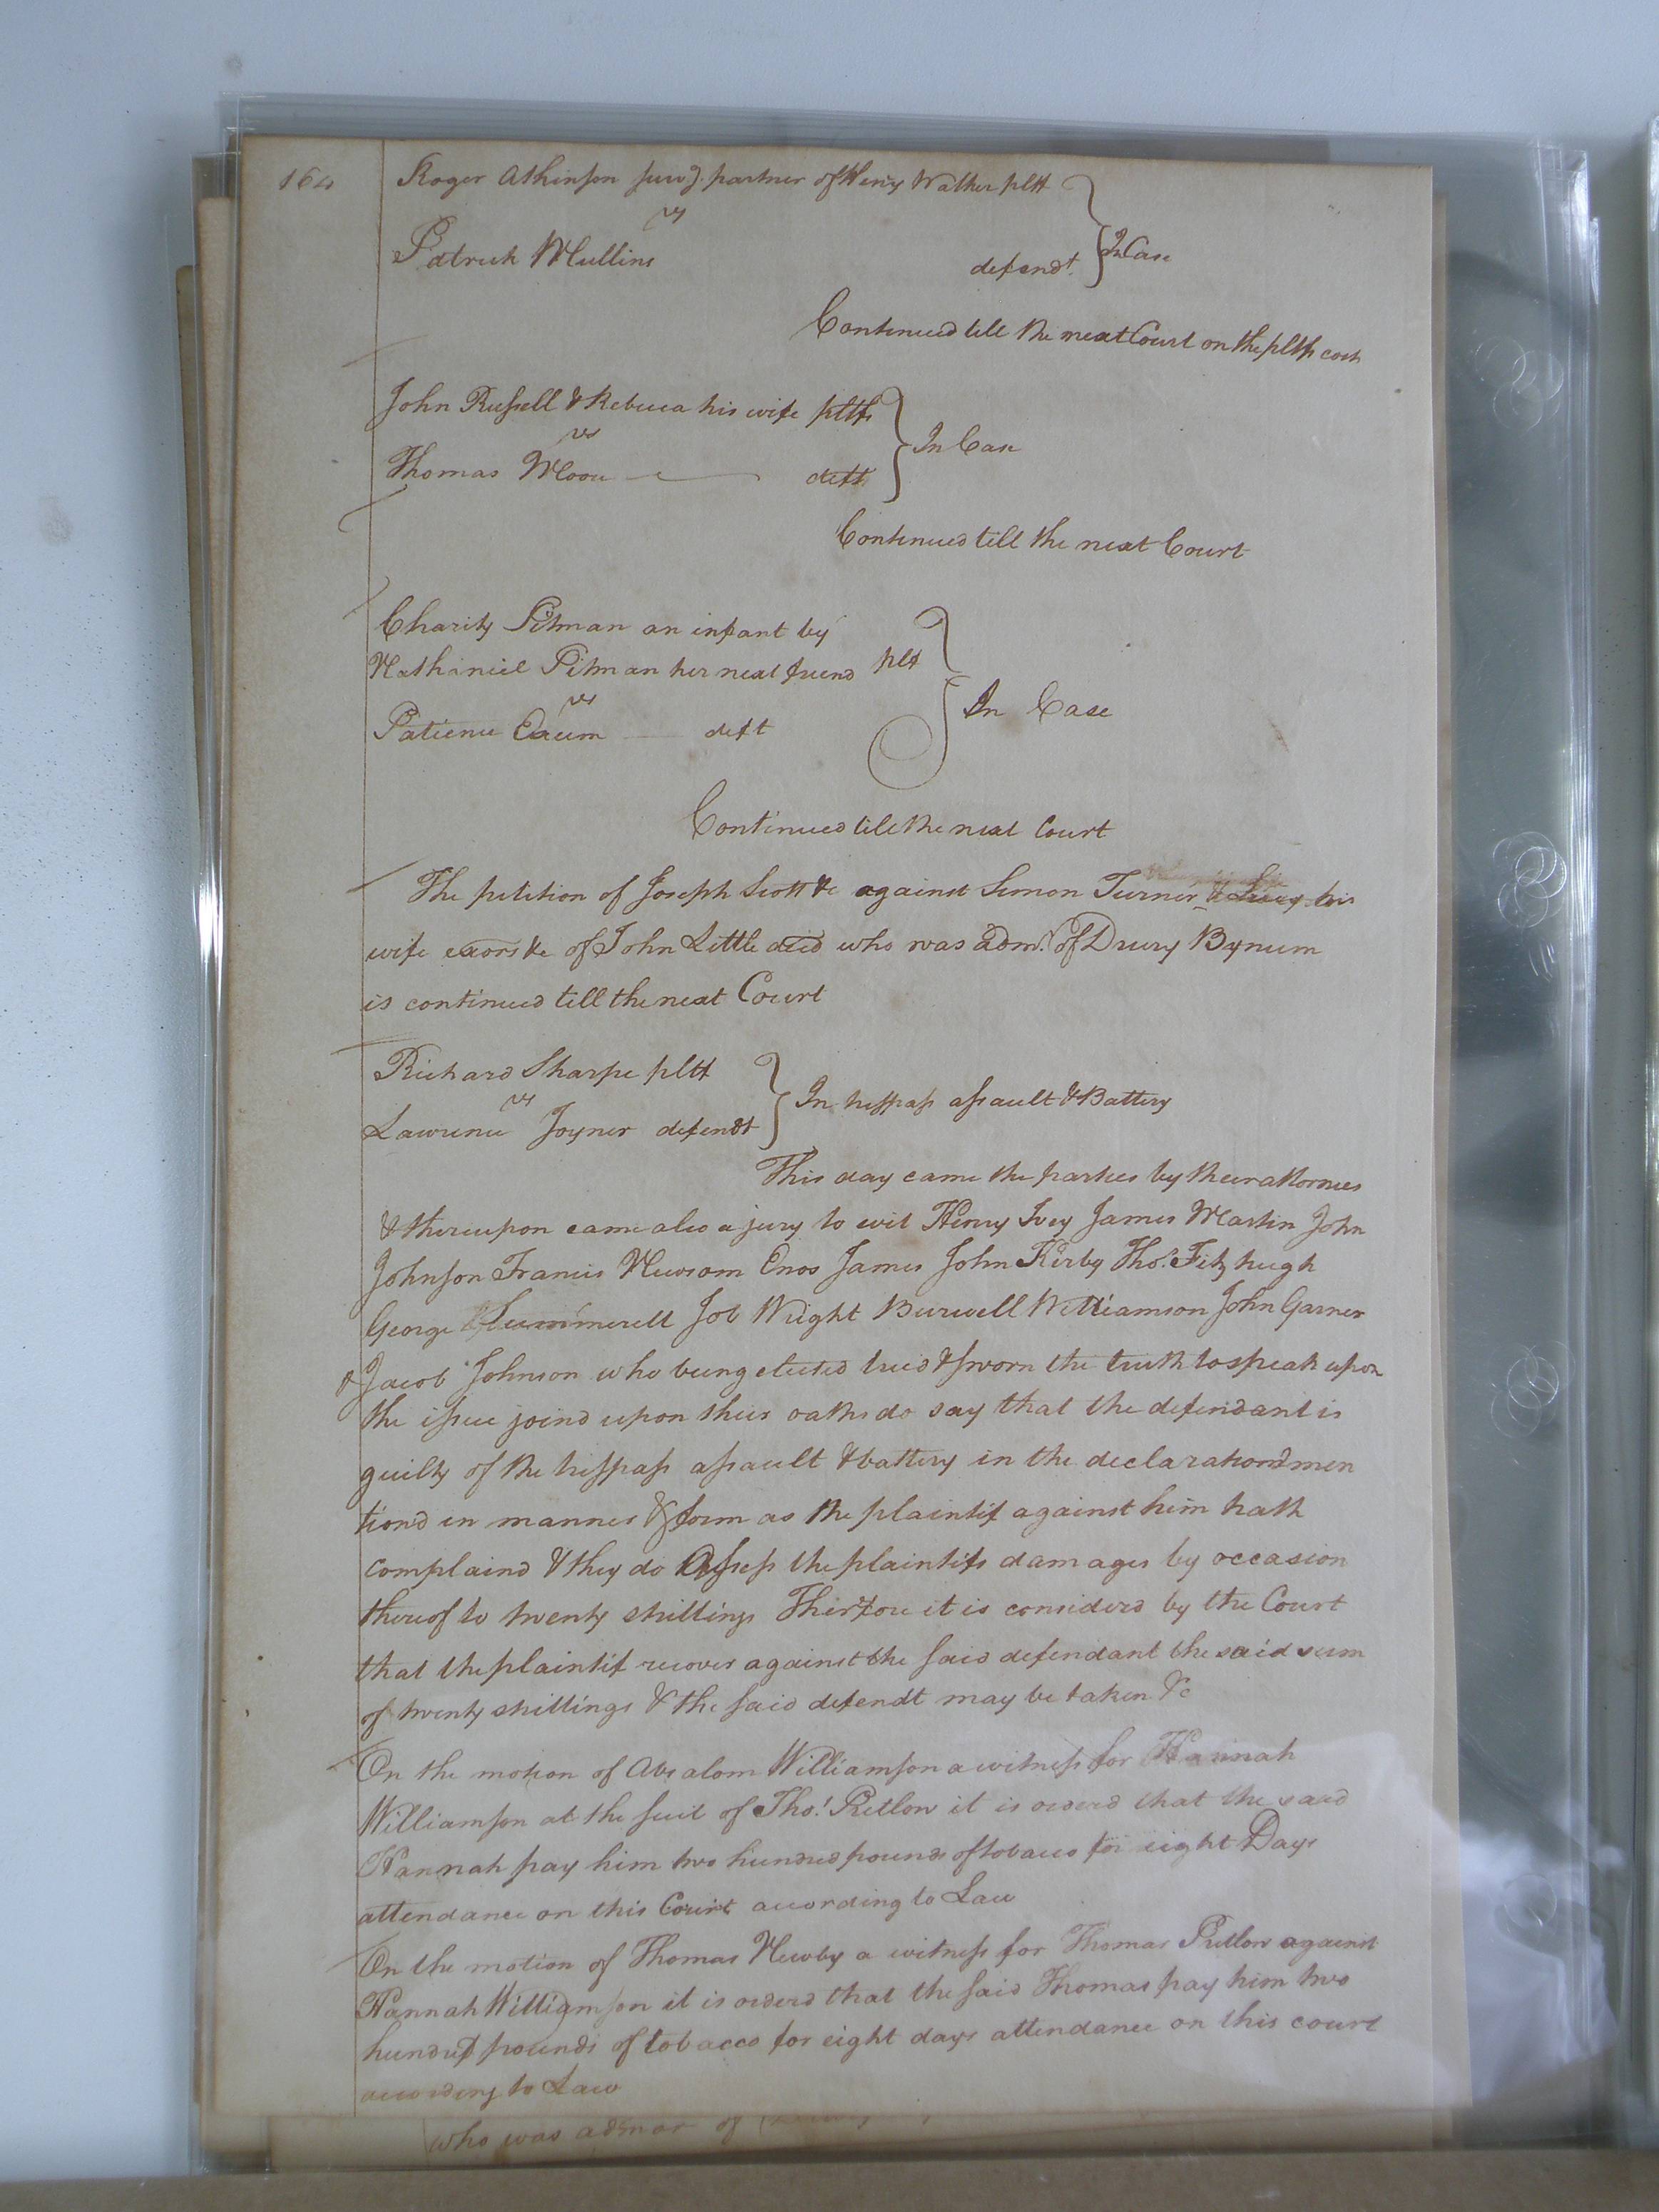 164
Roger Atkinson survg. partner of Henry Walker pltf
vs
Patrick Mullins defendt. In Case
Continued till the next Court on the pltfs costs
John Russell & Rebecca his wife pltfs
vs In Case
Thomas Moore deft.
Continued till the next Court
Charity Pitman an infant by
Nathaniel Pitman her next friend plt
vs In Case
Patience Exum deft
Continued till the next Court
The petition of Joseph Scott &c against Simon Turner & his
wife exors &c of John Little decd who was admr. of Drury Bynum
is continued till the next Court
Richard Sharpe pltf
vs In trespass assault & Battery
Lawrence Joyner defendt
This day came the parties by their attornies
& thereupon came also a jury to wit Henry Ivey James Martin John
Johnson Francis Newsom Enos James John Kirby Thos. Fitzhugh
George Summerell Job Wright Burwell Williamson John Garner
& Jacob Johnson who being elected tried & sworn the truth to speak upon
the issue joind upon their oaths do say that the defendant is
guilty of the trespass assault & battery in the declaration men
tiond in manner & form as the plaintif against him hath
complaind & they do Assess the plaintifs damages by occasion
thereof to twenty shillings Therefore it is considerd by the Court
that the plaintif recover against the said defendant the said sum
of twenty shillings & the said defendt may be taken &c
On the motion of Absalom Williamson a witness for Hannah
Williamson at the suit of Thos. Pretlow it is orderd that the said
Hannah pay him two hundred pounds of tobacco for eight Days
attendance on this Court according to Law
On the motion of Thomas Newby a witness for Thomas Pretlow against
Hannah Williamson it is orderd that the said Thomas pay him two
hundred pounds of tobacco for eight days attendance on this court
according to Law
who was admor of